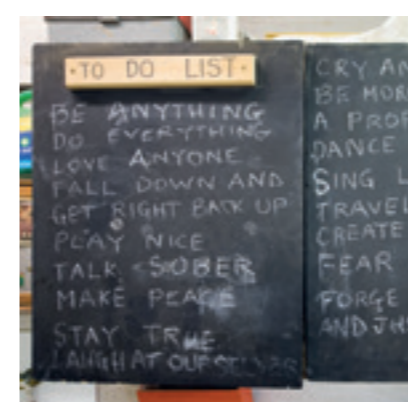 ·TO DO LIST·
BE ANYTHING
DO EVERYTHING
LOVE ANYONE
FALL DOWN AND
GET RIGHT BACK UP
PLAY NICE
TALK SOBER
MAKE PEACE
STAY TRUE
LAUGH AT OURSELVES
CRY AN
BE MOR
A PROF
DANCE
SING L
TRAVEL
CREATE
FEAR
FORGE
AND